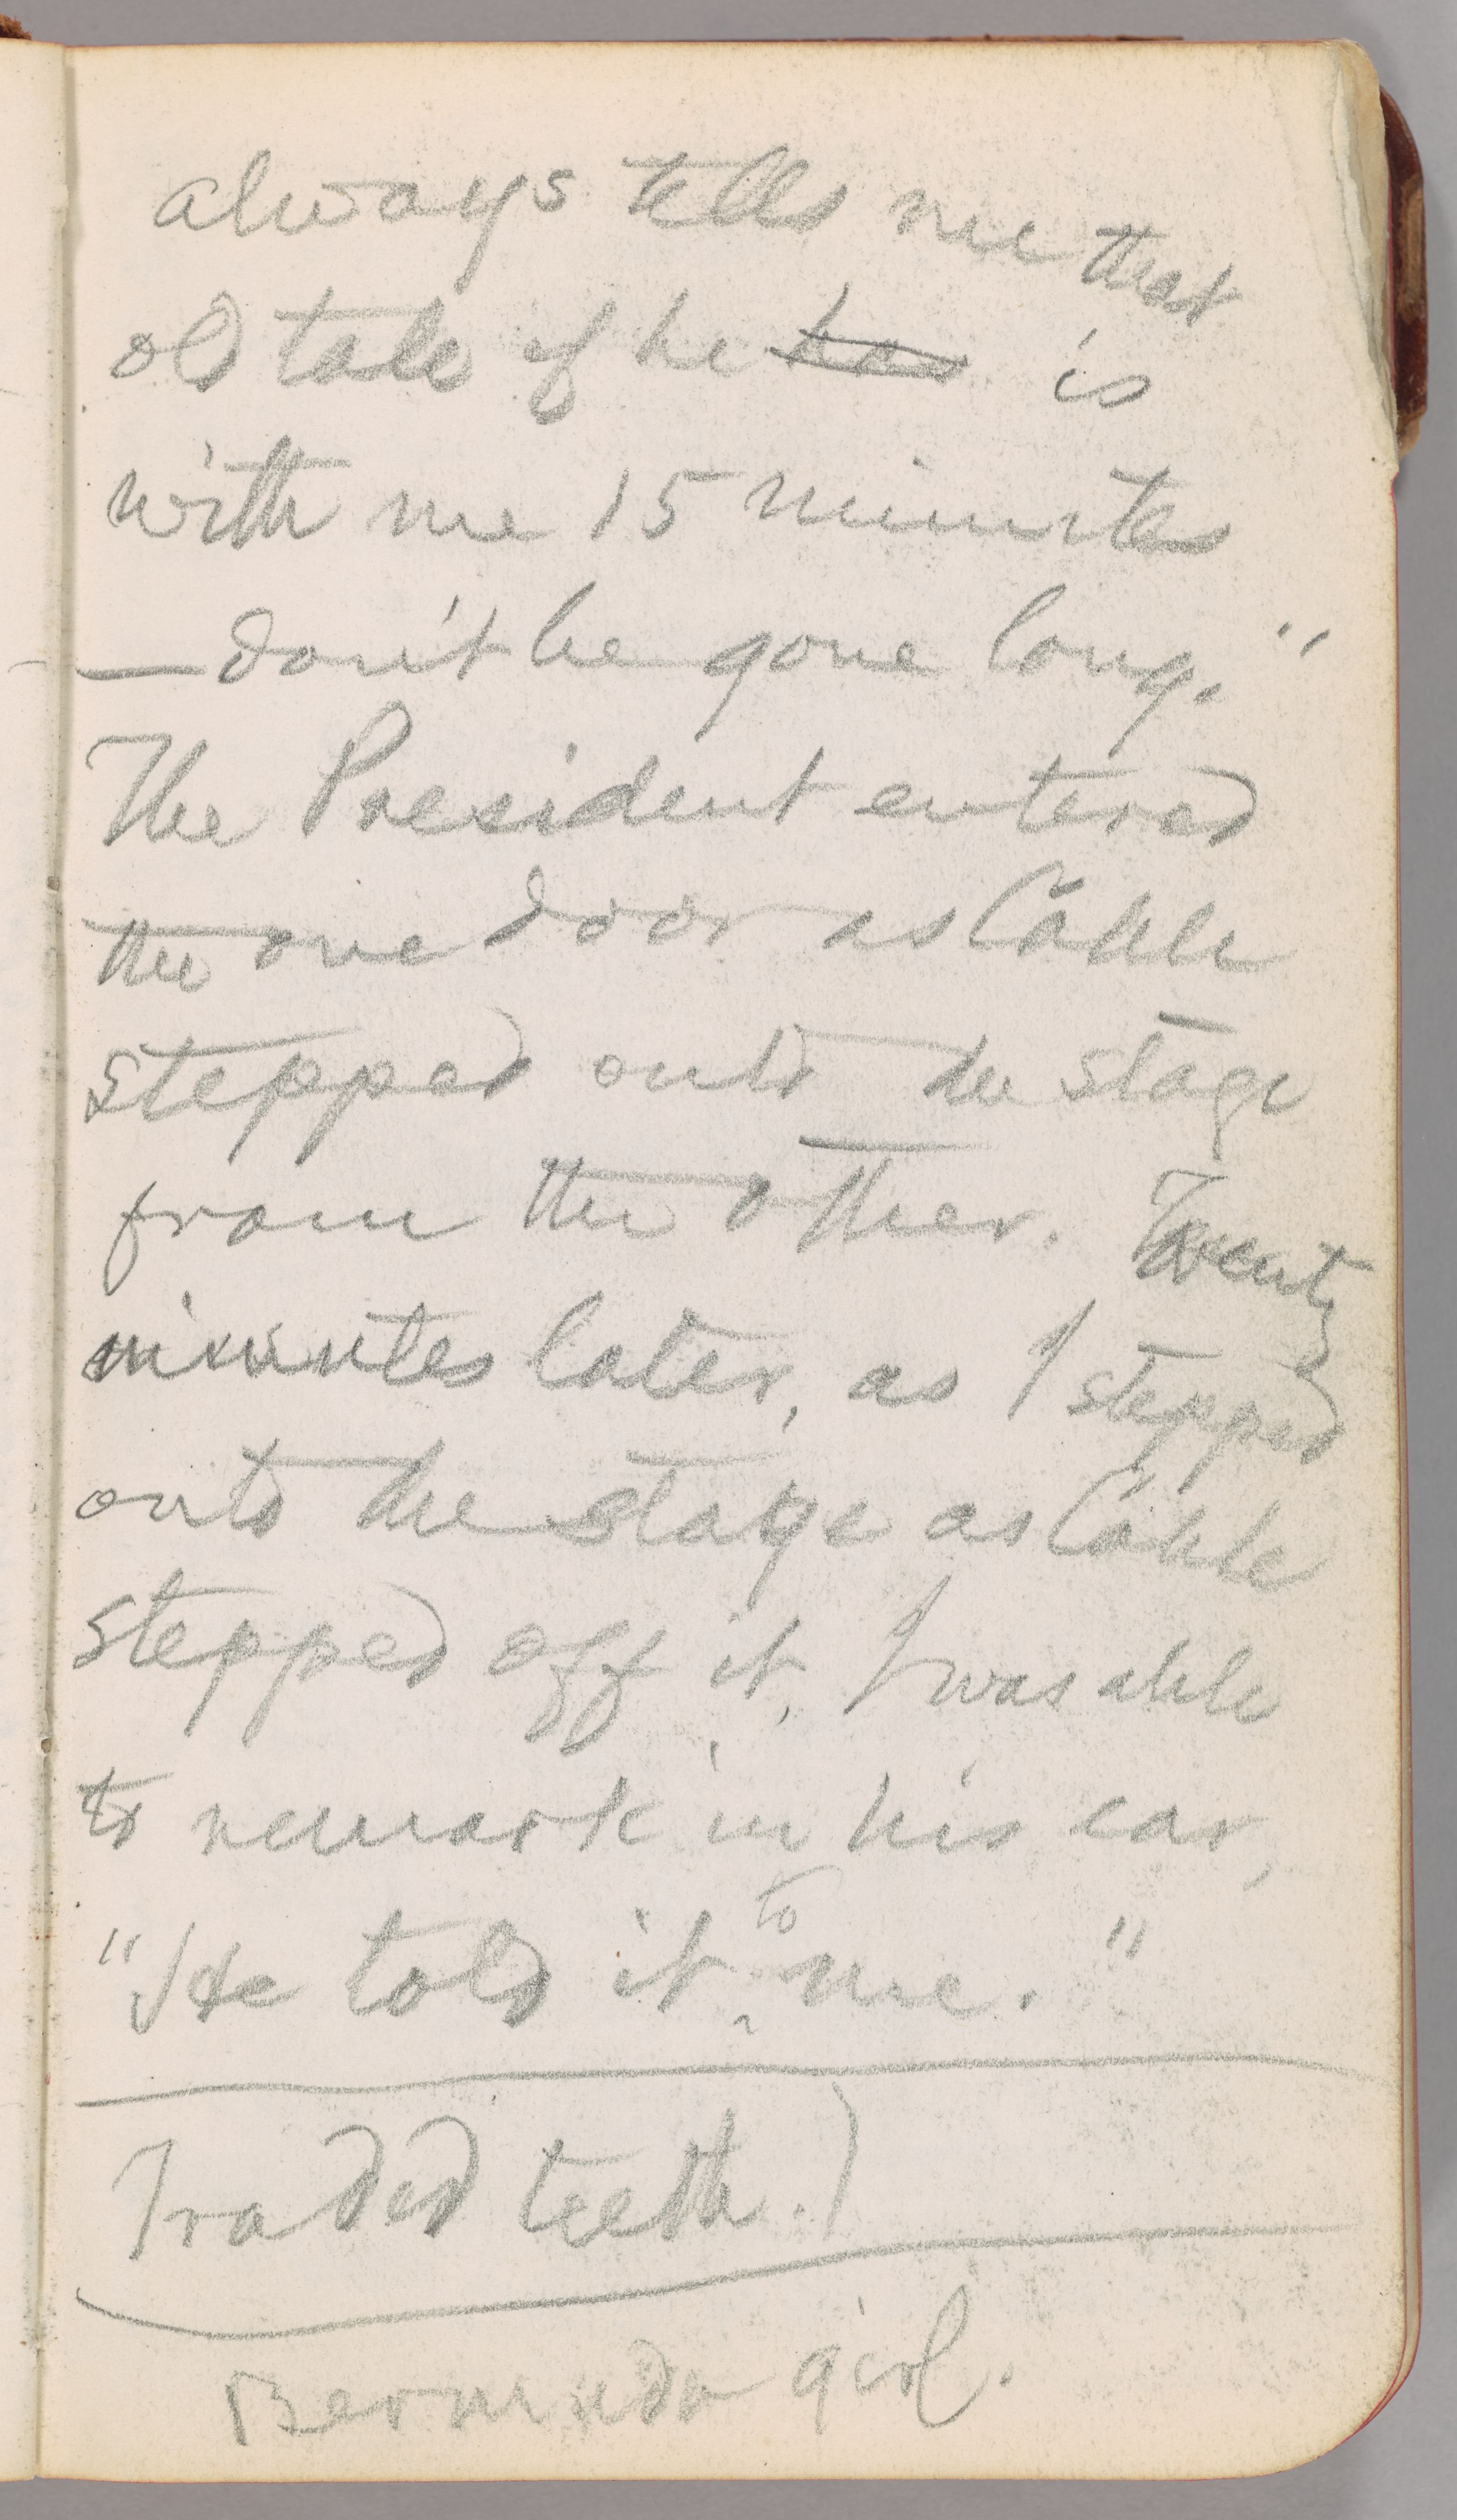 always tells me that
old tale if he has is
with me 15 minutes
—don't be gone long."
The President entered
the one door as Cable
stepped onto the stage
from the other. Twenty
minutes later, as I stepped
onto the stage as Cable
stepped off it, I was able
to remark in his ear,
"He told it to me."
Traded teeth.)
Bermuda girl.